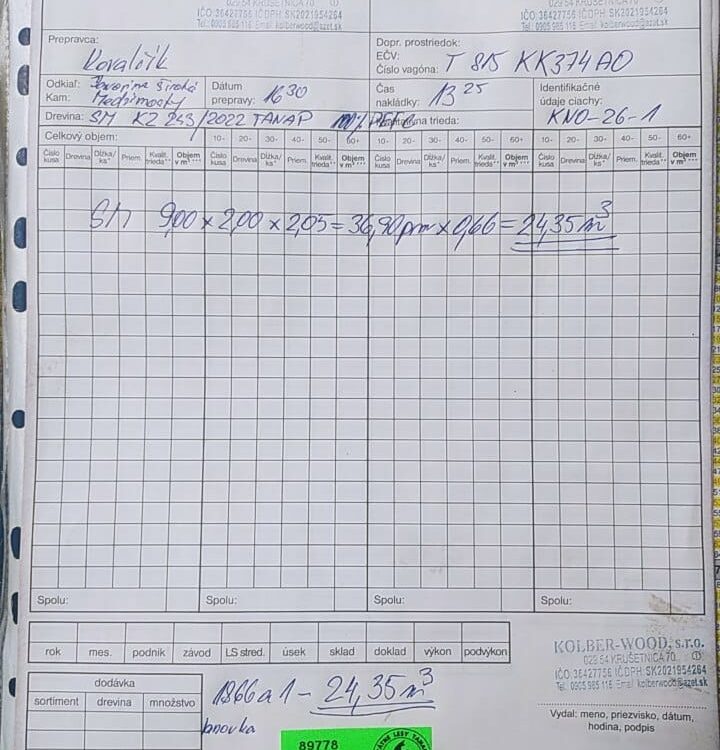 029 54 KRUŠETNICA 70
IČO: 36427756 IČDPH: SK2021954264
Tel.: 0905 985 116 Email: kolberwood@azet.sk
Prepravca:
Kovalčik
Dopr. prostriedok:
EČV:
Číslo vagóna: T 815 KK374AO
Odkiaľ: Javorina Široká
Kam:
Dátum
prepravy: 16 30
Čas
nakládky: 13 25
Identifikačné
údaje ciachy:
KNO-26-1
Drevina: SM KZ 243/2022 TANAP 100% PEFC trieda:
Celkový objem: 10- 20- 30- 40- 50- 60+ 10- 20- 30- 40- 50- 60+ 10- 20- 30- 40- 50- 60+
Číslo kusa Drevina Dĺžka/ ks* Priem. Kvalit. trieda** Objem v m³*** Číslo kusa Drevina Dĺžka/ ks* Priem. Kvalit. trieda** Objem v m³*** Číslo kusa Drevina Dĺžka/ ks* Priem. Kvalit. trieda** Objem v m³*** Číslo kusa Drevina Dĺžka/ ks* Priem. Kvalit. trieda** Objem v m³***
SM 9,00 x 2,00 x 2,05 = 36,90 prm x 0,66 = 24,35 m³
Spolu: Spolu: Spolu: Spolu:
rok mes. podnik závod LS stred. úsek sklad doklad výkon podvýkon
KOLBER-WOOD, s.r.o.
029 54 KRUŠETNICA 70
IČO: 36427756 IČDPH: SK2021954264
Tel.: 0905 985 116 Email: kolberwood@azet.sk
dodávka
sortiment drevina množstvo
1866 a 1 - 24,35 m³
Vydal: meno, priezvisko, dátum,
hodina, podpis
89778